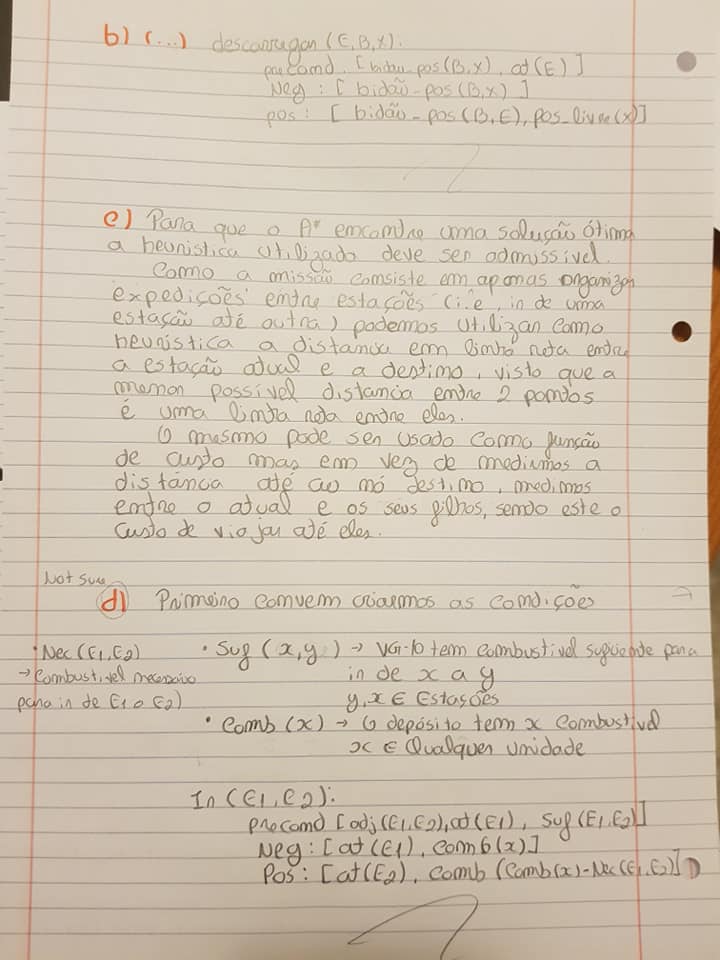 b) (...) descarregar (E,B,X).
precond. [bidão-pos(B,X), at(E)]
Neg : [ bidão-pos(B,X) ]
pos : [ bidão-pos(B,E), pos-livre(x)]
c) Para que o A* encontre uma solução ótima
a heuristica utilizado deve ser admissivel.
Como a missão consiste em apenas organizar
expedições entre estações (i.e, ir de uma
estação até outra) podemos utilizar como
heuristica a distancia em linha reta entre
a estação atual e a destino, visto que a
menor possível distancia entre 2 pontos
é uma linha reta entre eles.
O mesmo pode ser usado como função
de custo mas em vez de medirmos a
distância até ao nó destino, medimos
entre o atual e os seus filhos, sendo este o
custo de viajar até eles.
Not sure
d) Primeiro convem criarmos as condições
• Nec(E1,E2)
→ Combustivel necessário
para ir de E1 a E2)
• Suf (x,y) → VG-10 tem combustivel suficiente para
ir de x a y
y,x ∈ Estações
• Comb (x) → O depósito tem x combustivel
x ∈ Qualquer unidade
Ir (E1,E2):
precond [adj(E1,E2),at(E1), Suf(E1,E2)]
Neg : [at(E1), Comb(x)]
Pos : [at(E2), Comb (Comb(x)-Nec(E1,E2)]